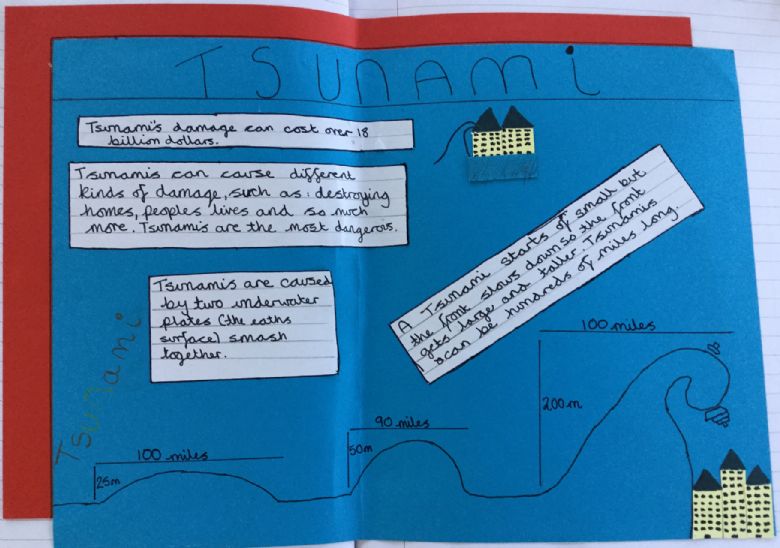 TSUNAMi
Tsunami's damage can cost over 18
billion dollars.
Tsunamis can cause different
kinds of damage, such as: destroying
homes, peoples lives and so much
more. Tsunamis are the most dangerous.
A Tsunami starts of small but
the front slows down so the front
gets large and taller. Tsunamis
can be hundreds of miles long.
Tsunamis are caused
by two underwater
plates (the eaths
surface) smash
together.
Tsunami
100 miles
25m
90 miles
50m
100 miles
200m